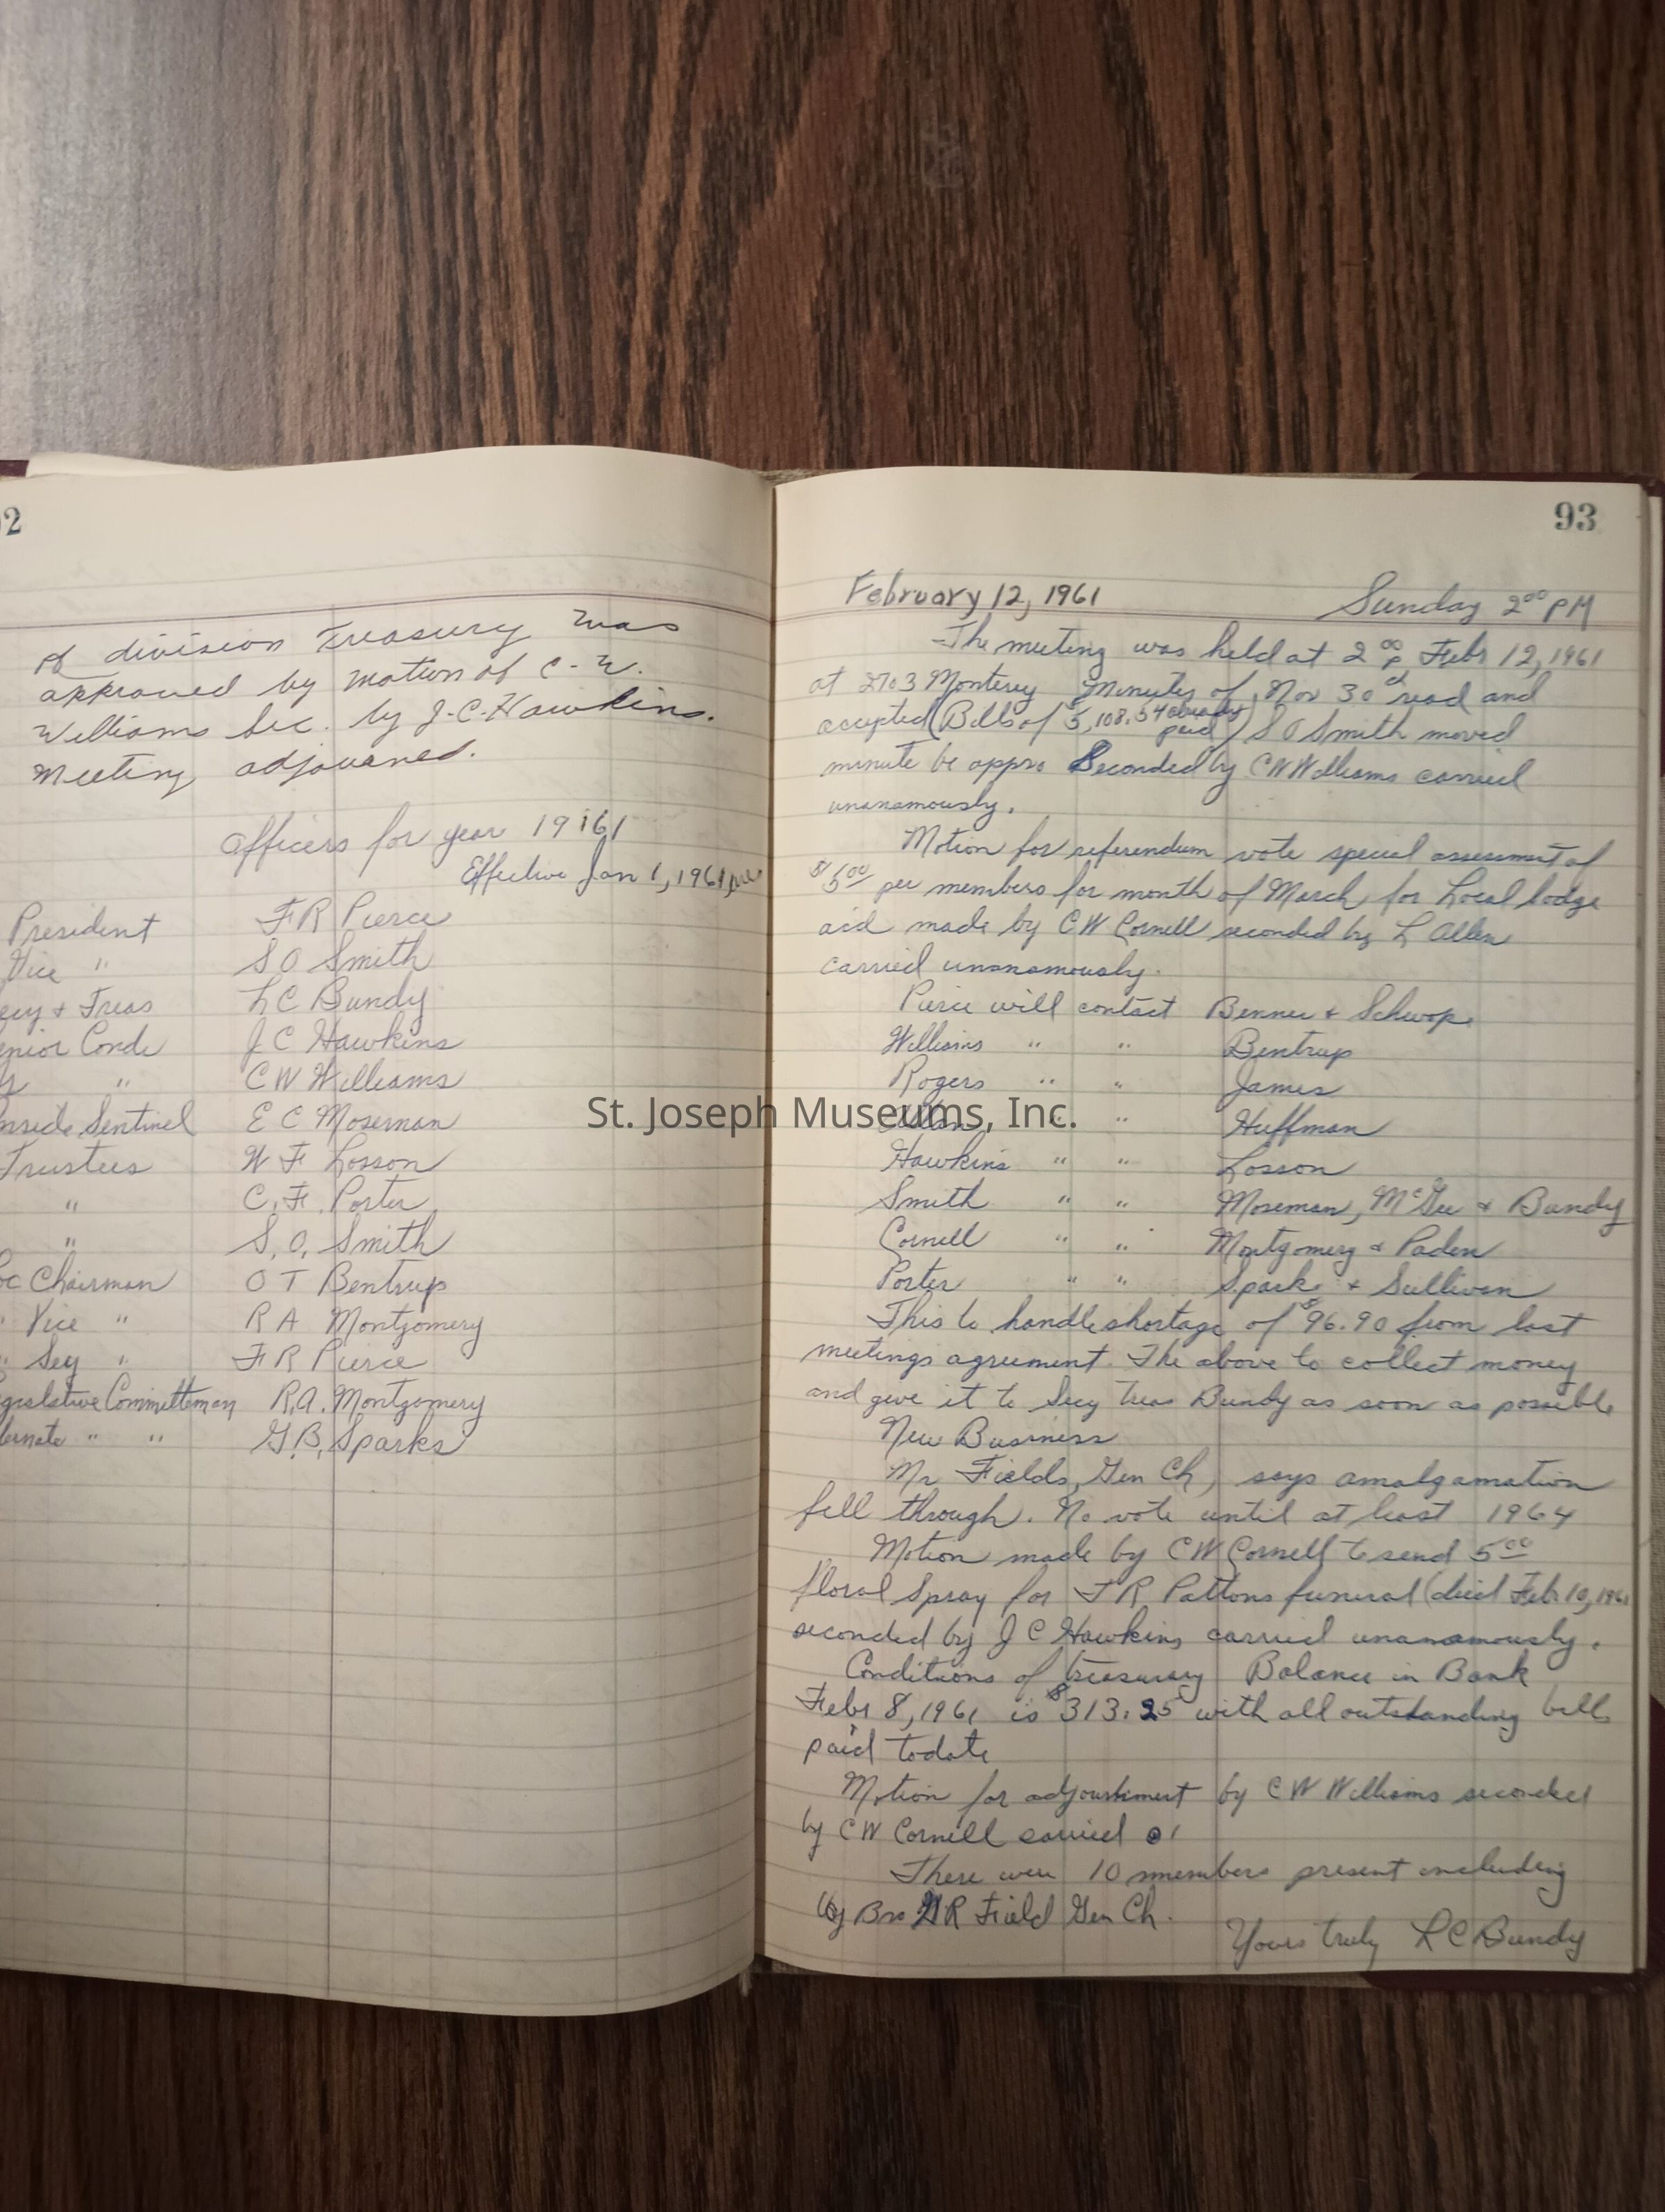 92
of division Treasury was
approved by motion of C-W.
Williams Sec. by J-C-Hawkins.
Meeting adjourned.
Officers for year 19161
Effective Jan 1, 1961
President F R Pierce
Vice " S O Smith
ecy + Treas L C Bundy
enior Condr J C Hawkins
" C W Williams
nside Sentinel E C Moserman
Trustees W F Losson
" C. F. Porter
" S. O. Smith
oc Chairman O T Bentrup
" Vice " R A Montgomery
" Secy " F R Pierce
gislative Committeman R.A. Montgomery
ternate " " G.B. Sparks
93
February 12, 1961 Sunday 2⁰⁰ PM
The meeting was held at 2⁰⁰ P Febr 12, 1961
at 2703 Monterey Minutes of Nov 30 read and
accepted (Bills of $5,108.54 already paid) S O Smith moved
minute be appro Seconded by C W Williams carried
unanamously.
Motion for referendum vote special assessment of
$5⁰⁰ per members for month of March for Local lodge
aid made by C W Cornell seconded by L Allen
carried unanamously.
Pierce will contact Benner + Schwop
Williams " " Bentrup
Rogers " " James
Allen " " Huffman
Hawkins " " Losson
Smith " " Moseman, McGee + Bundy
Cornell " " Montgomery + Paden
Porter " " Spark + Sullivan
This to handle shortage of $96.90 from last
meetings agreement. The above to collect money
and give it to Secy Treas Bundy as soon as possible
New Business
Mr Fields, Gen Ch, says amalgamation
fell through. No vote until at least 1964
Motion made by C W Cornell to send 5⁰⁰
floral Spray for J R Pattons funeral (died Feb 10, 1961
seconded by J C Hawkins carried unanamously.
Conditions of treasury Balance in Bank
Febr 8, 1961 is $313.25 with all outstanding bills
paid todate
Motion for adjournment by C W Williams seconded
by C W Cornell carried
There were 10 members present including
by Bro G R Field Gen Ch.
Yours truly L C Bundy
St. Joseph Museums, Inc.